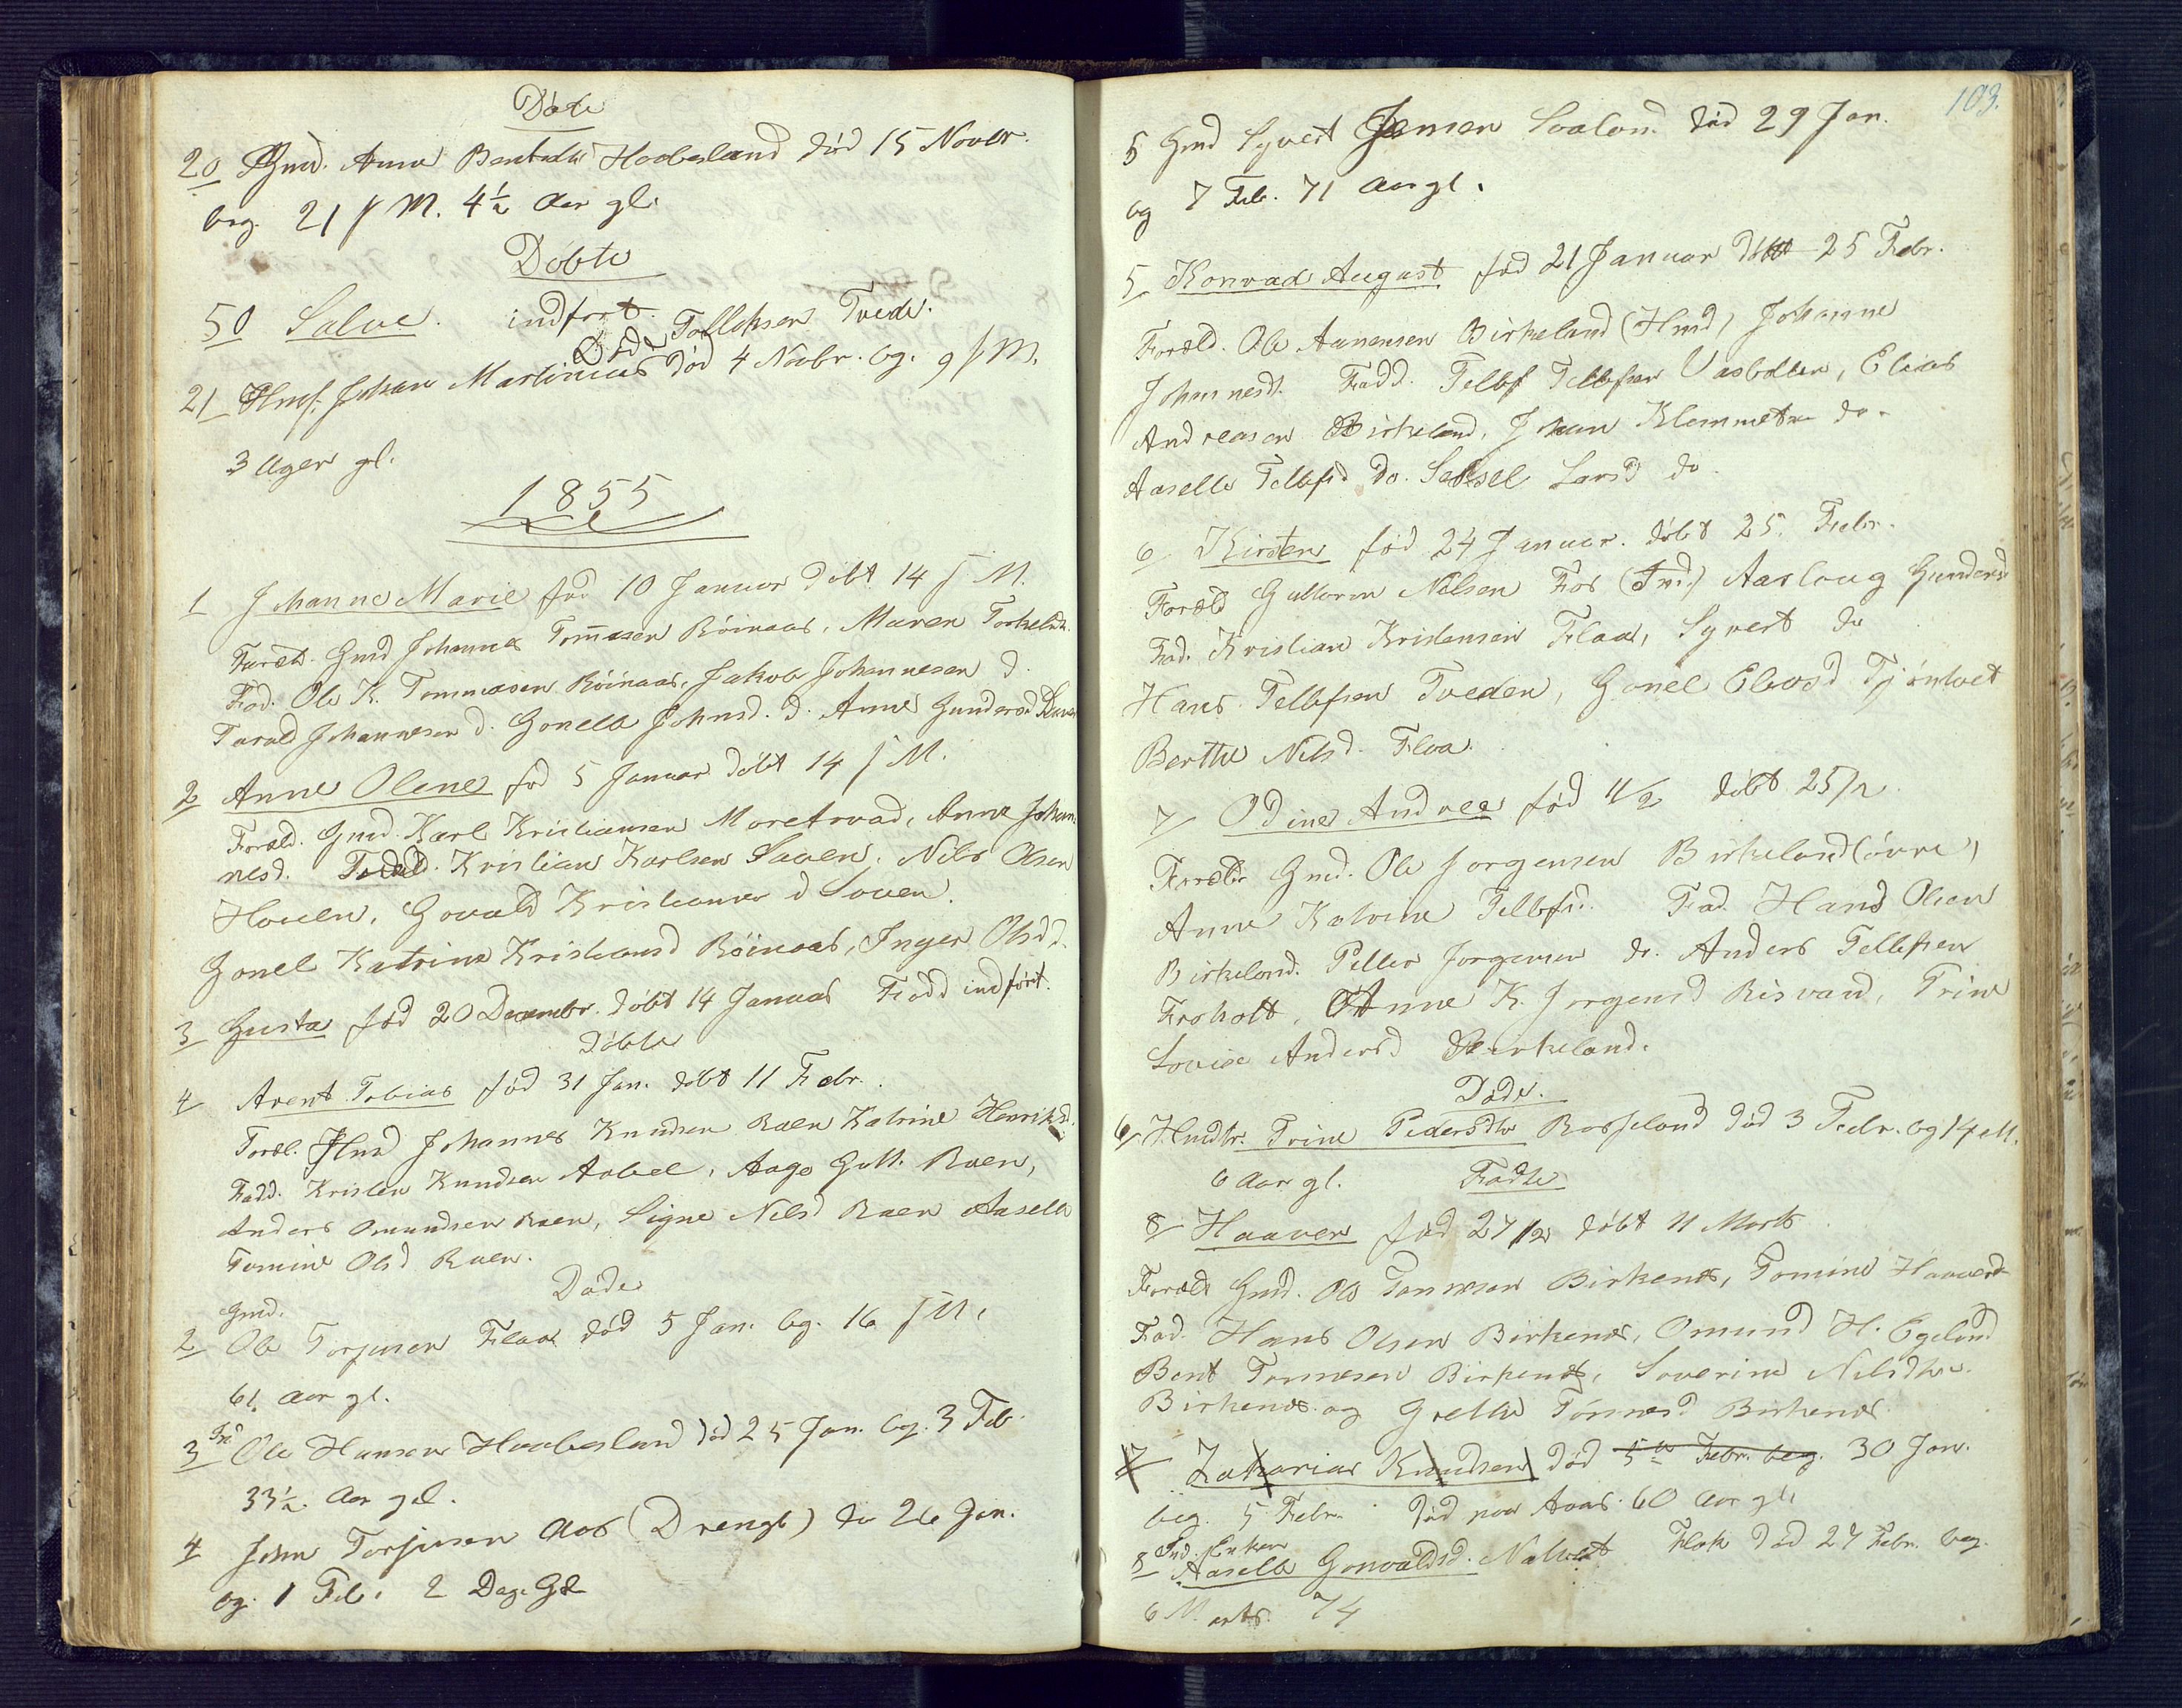 Døde
20 Gmd. Anne Bentsdtr Hodesland død 15 Novbr.
beg. 21 s M. 4½ Aar gl.
Døbte
50 Salve. indført.
Døde Tollefsen Tvede.
21 Hmf. Johan Martinius død 4 Novbr. bg. 9 s M.
3 Uger gl.
1855
1 Johanne Marie fød 10 Januar døbt 14 s M.
Foræld. Gmd Johannes Tommesen Röinaas, Maren Torkelsd.
Fad. Ole K. Tommesen Röinaas, Jakob Johannesen d.
Tarald Johannesen d. Gonelle Johnsd. d. Anne Gundersd
2 Anne Olene fød 5 Januar døbt 14 s M.
Foræld. Gmd. Karl Kristiansen Moretrvad, Anne Johan-
nesd. Fadd. Kristian Karlsen Saven, Nils Olsen
Hoven, Govald Kristiansen d Soven.
Gonel Katrine Kristiansd Röinaas, Inger Olsd d.
3 Gusta fød 20 Decembr. døbt 14 Januar Fadd indført.
Døbte
4 Arent Tobias fød 31 Jan. døbt 11 Febr.
Foræl. Hmd Johannes Knudsen Raen Katrine Henriksd.
Fadd. Kristen Knudsen Aabel, Aage Gutt. Raen,
Anders Omundsen Raen, Signe Nilsd Raen Aaselle
Tomine Olsd Raen.
Døde
Gmd.
2 Ole Torjusen Flaa død 5 Jan. bg. 16 s M.
61 Aar gl.
3 Ind Ole Hansen Haabesland død 25 Jan. bg. 3 Feb
33½ Aar gl.
4 John Torjusen Aas (Drengb) dø 26 Jan.
bg. 1 Feb. 2 Dage Gl
103.
5 Gmd Syvert Jensen Svaland død 29 Jan.
bg 7 Feb. 71 Aar gl.
5 Konrad August fød 21 Januar døbt 25 Febr.
Foræld. Ole Aanensen Birkeland (Hmd) Johanne
Johannesd. Fadd. Tellef Tellefsen Vasbotten, Elias
Andreasen Birkeland, Johan Klemmets do.
Aaselle Tellefsd do. Sissel Larsd do
6 Kirsten fød 24 Januar. døbt 25. Febr.
Foræld Guttorm Nilsen Fos (Ind.) Aasloug Gundersd
Fad. Kristian Kristensen Flaa, Syvert do
Hans Tellefsen Tveden, Gonel Olevsd Tjöntvet
Berthe Nilsd. Flaa.
7 Odine Andrea fød 11/2 døbt 25/2.
Forældr Gmd. Ole Jorgensen Birkeland (övre)
Anne Katrine Tellefsd. Fad. Hans Olsen
Birkeland. Peller Jorgensen do. Anders Tellefsen
Froholt, Anne K. Jorgensd Risvand, Trine
Lovise Andersd Birkeland.
Døde.
6 Hmdtr. Trine Pedersdtr Rosseland død 3 Febr. bg 14 s M.
6 Aar gl. Fødte
8 Haaver fød 27/12 døbt 11 Marts
Foræld Gmd. Ole Tønnesen Birkenes, Tomine Haaversd
Fad. Hans Olsen Birkenes, Omund H. Egeland
Bent Tønnesen Birkenes, Severine Nilsdtr.
Birkenes og Grethe Tönnesd Birkenes
7 Zakarias Knudsen død 5te Febr. beg. 30 Jan.
beg. 5 Febr. død paa Aaas. 60 Aar gl.
8 Ind. Enken Aaselle Gonvaldsd. Natvet Flak død 27 Febr. beg.
6 Marts. 74